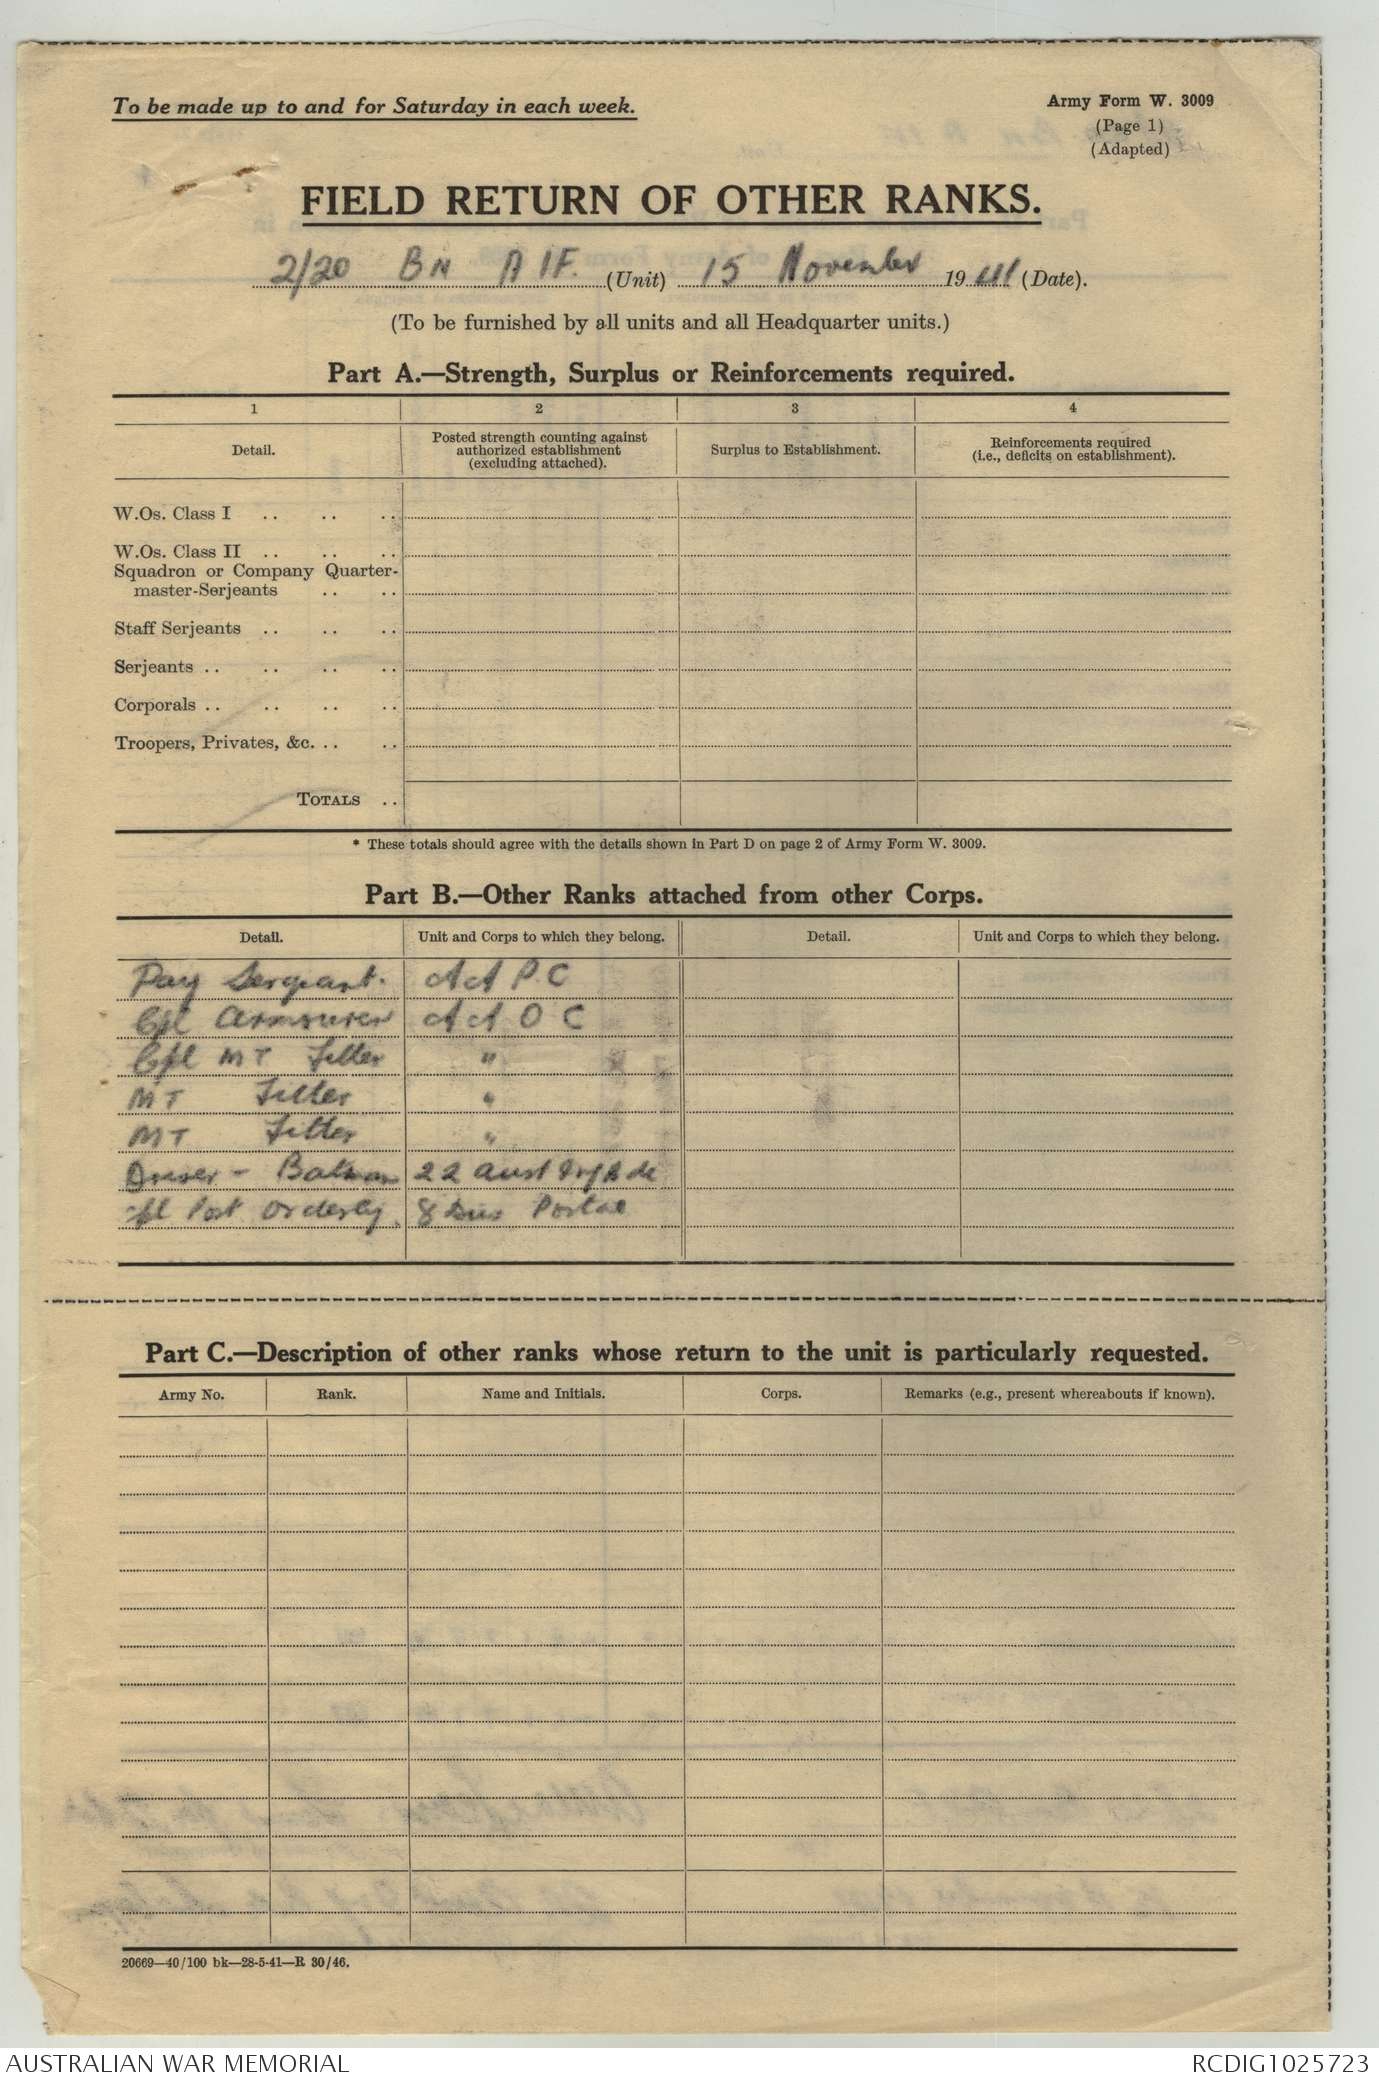 To be made up to and for Saturday in each week.
Army Form W. 3009
(Page 1)
(Adapted)
FIELD RETURN OF OTHER RANKS.
2/20 BN A I F. (Unit) 15 November 1941 (Date).
(To be furnished by all units and all Headquarter units.)
Part A.—Strength, Surplus or Reinforcements required.
1 2 3 4
Detail. Posted strength counting against authorized establishment (excluding attached). Surplus to Establishment. Reinforcements required (i.e., deficits on establishment).
W.Os. Class I .. .. ..
W.Os. Class II .. .. ..
Squadron or Company Quarter-
master-Serjeants .. ..
Staff Serjeants .. .. ..
Serjeants .. .. .. ..
Corporals .. .. .. ..
Troopers, Privates, &c. .. ..
TOTALS ..
* These totals should agree with the details shown in Part D on page 2 of Army Form W. 3009.
Part B.—Other Ranks attached from other Corps.
Detail. Unit and Corps to which they belong. Detail. Unit and Corps to which they belong.
Pay Sergeant. A A P. C
Cpl Armourer A A O C
Cpl MT Fitter "
MT Fitter "
MT Fitter "
Driver - Batman 22 Aust Inf Bde
Cpl Post Orderly. 8 Div Postal
Part C.—Description of other ranks whose return to the unit is particularly requested.
Army No. Rank. Name and Initials. Corps. Remarks (e.g., present whereabouts if known).
20669—40/100 bk—28-5-41—R 30/46.
AUSTRALIAN WAR MEMORIAL
RCDIG1025723